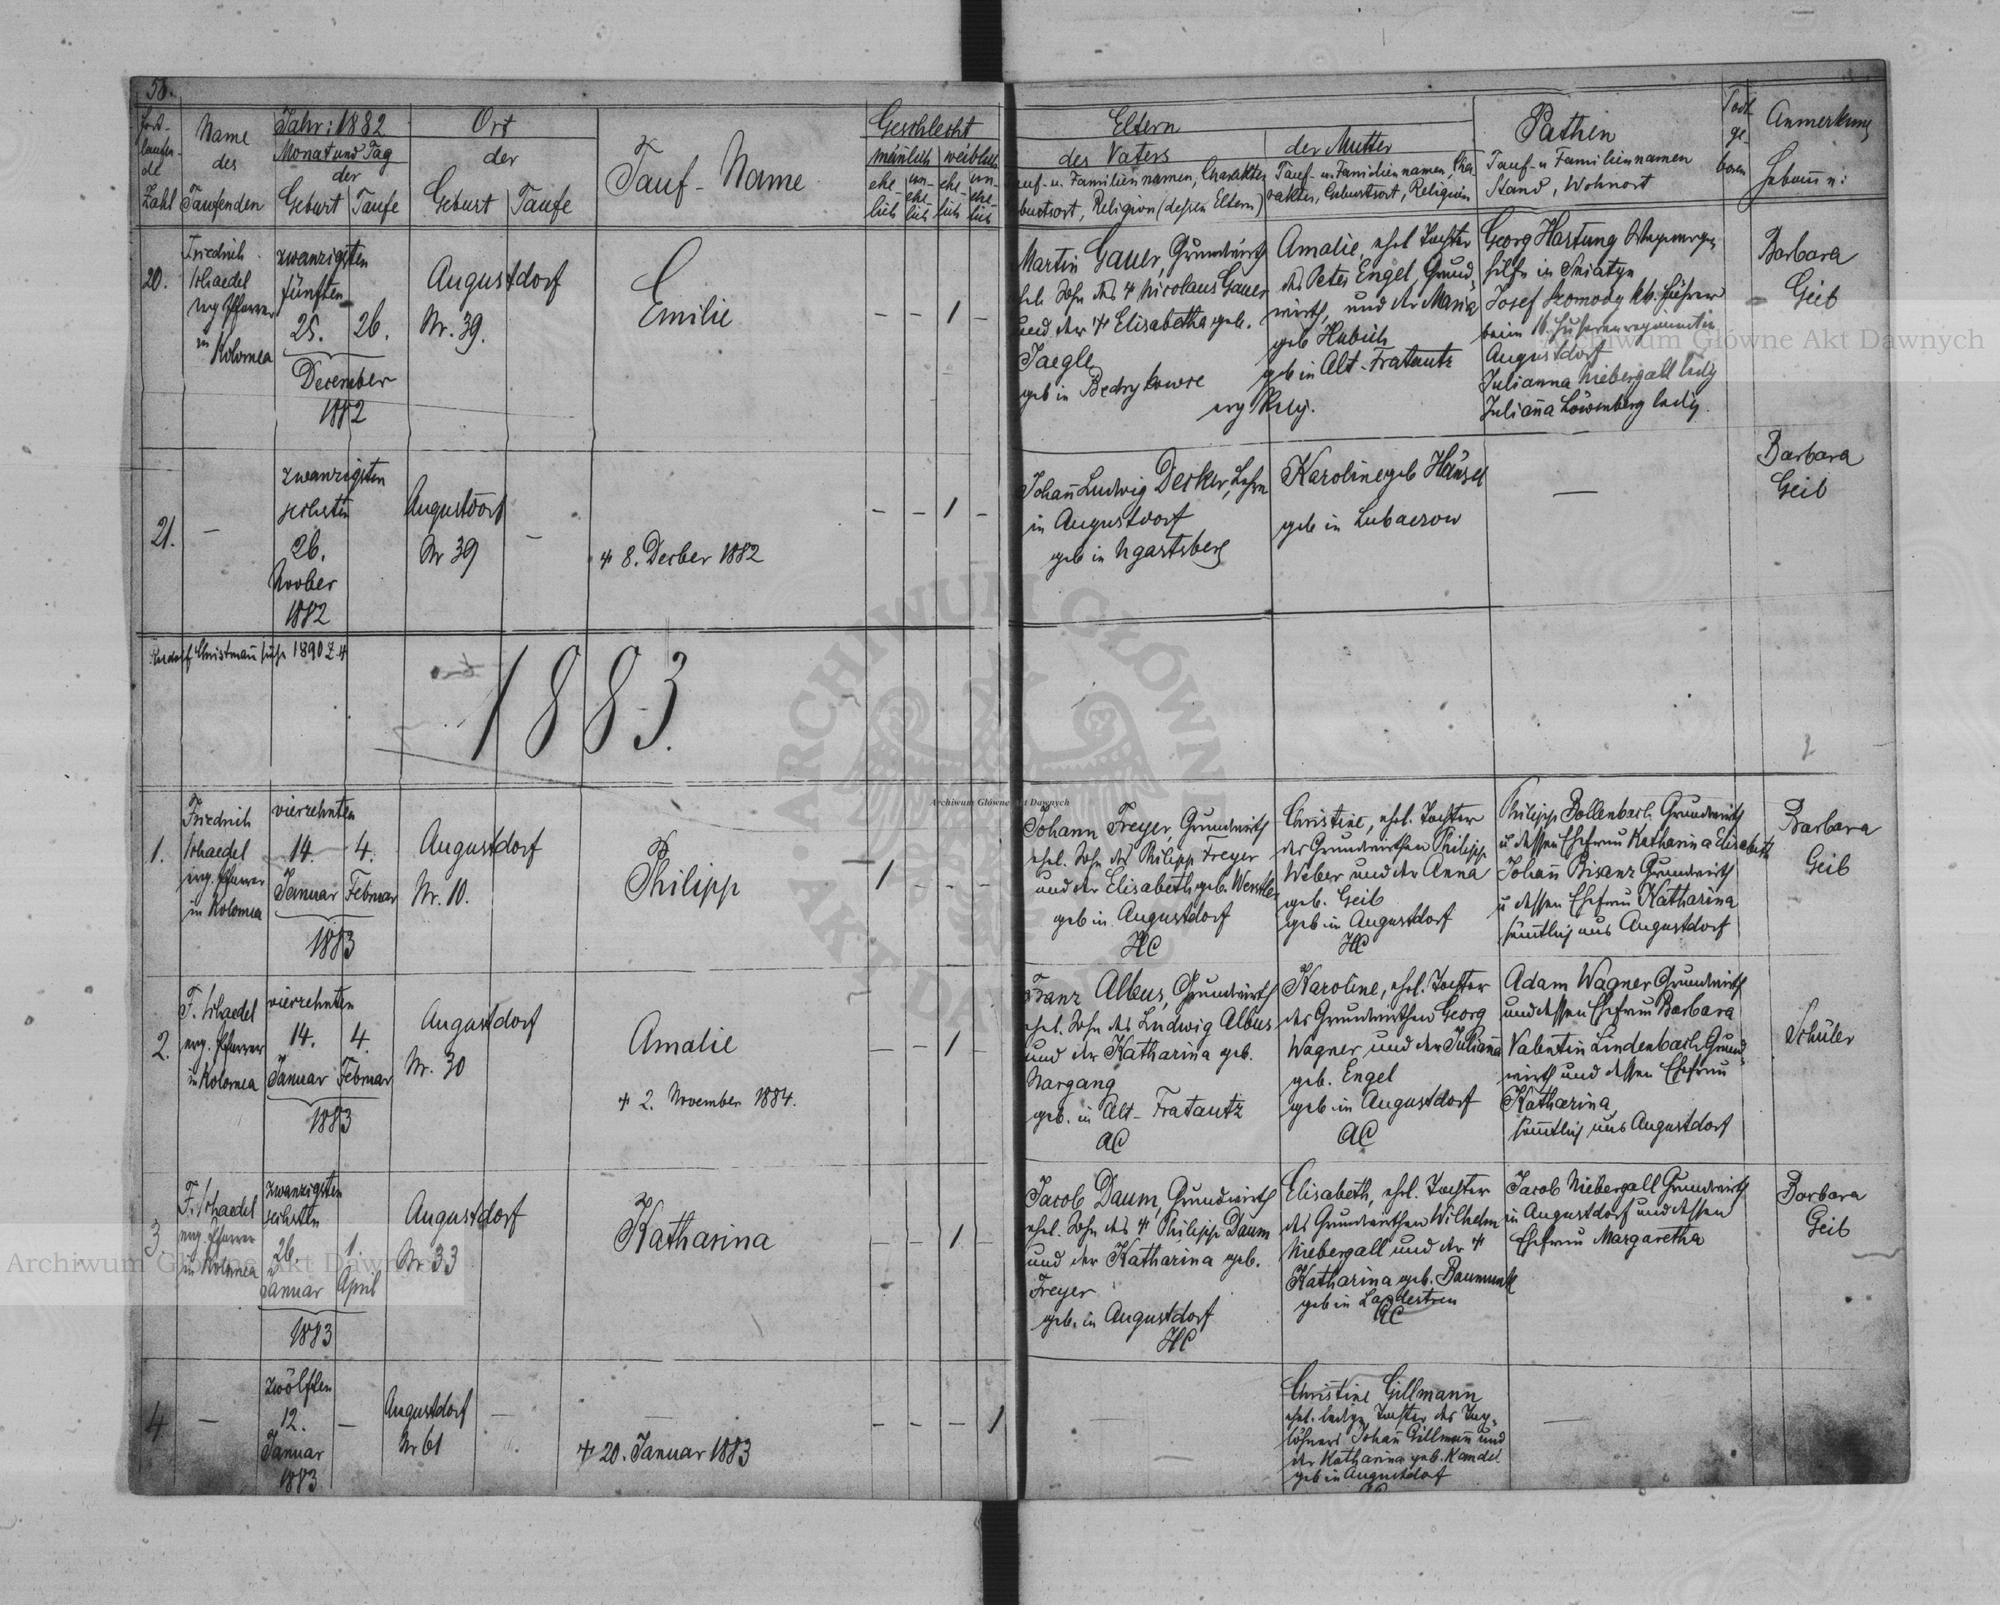 58.
Fort-
laufen-
de
Zahl
Name
des
Taufenden
Jahr: 1882
Monat und Tag
der
Geburt
Taufe
Ort
der
Geburt
Taufe
Tauf-Name
Geschlecht
mänlich
weiblich
ehe-
lich
un-
ehe-
lich
ehe-
lich
un-
ehe-
lich
Eltern
des Vaters
Tauf- u. Familiennamen, Charakter
Geburtsort, Religion (dessen Eltern)
der Mutter
Tauf- u. Familiennamen, Cha-
rakter, Geburtsort, Religion
Pathen
Tauf- u Familiennamen
Stand, Wohnort
Todt
ge-
boren
Anmerkung
Hebamme:
20.
Friedrich
Schaedel
evg Pfarrer
in
Kolomea
zwanzigsten
fünften
25.
26.
December
1882
Augustdorf
Nr. 39.
Emilie
– – 1 –
Martin Gauer, Grundwirth
ehl. Sohn des + Nicolaus Gauer
und der + Elisabetha geb.
Jaegle
geb in Bedrykowce
Amalie, ehel Tochter
des Peter Engel, Grund-
wirth, und der Maria
geb Hubich
geb in Alt-Fratautz
evg Relig.
Georg Hartung
in Sniatyn
Josef Szomody kk. Führer
beim
Augustdorf
Julianna Niebergall ledig
Juliana Löwenberg ledig.
Barbara
Geib
21.
–
zwanzigsten
sechsten
26.
Novber
1882
Augustdorf
Nr 39
–
+ 8. Decber 1882
– – 1 –
Johann Ludwig Decker, Lehrer
in Augustdorf
geb in Ugartsberg
Karoline geb Hänsel
geb in Lubaczow
—
Barbara
Geib
Christmann 1890 Z. 4
1883.
1.
Friedrich
Schaedel
evg. Pfarrer
in Kolomea
vierzehnten
14.
4.
Januar
Februar
1883
Augustdorf
Nr. 10.
Philipp
1 - - -
Johann Freyer, Grundwirth
ehel. Sohn des Philipp Freyer
und der Elisabeth geb. Werstler
geb in Augustdorf
HC
Christine, ehel. Tochter
des Grundwirthen Philipp
Weber und der Anna
geb. Geib
geb in Augustdorf
HC
Philipp Bollenbach Grundwirth
u dessen Ehefrau Katharina Elisabeth
Johann Bisanz Grundwirth
u dessen Ehefrau Katharina
sämtlich aus Augustdorf
Barbara
Geib
2.
F. Schaedel
evg. Pfarrer
in Kolomea
vierzehnten
14.
4.
Januar
Februar
1883
Augustdorf
Nr. 30
Amalie
+ 2. November 1884.
– – 1 –
Franz Albus, Grundwirth
ehel. Sohn des Ludwig Albus
und der Katharina geb.
Nargang
geb. in Alt-Fratautz
AC
Karoline, ehel. Tochter
des Grundwirthen Georg
Wagner und der Juliana
geb. Engel
geb in Augustdorf
AC
Adam Wagner Grundwirth
und dessen Ehefrau Barbara
Valentin Lindenbach Grund-
wirth und dessen Ehefrau
Katharina
sämtlich aus Augustdorf
Schüler
3.
F. Schaedel
evg. Pfarrer
in Kolomea
zwanzigsten
sechsten
26.
1.
Januar
April
1883
Augustdorf
Nr. 33
Katharina
– – 1 –
Jacob Daum, Grundwirth
ehel. Sohn des + Philipp Daum
und der Katharina geb.
Freyer
geb. in Augustdorf
HC
Elisabeth, ehel. Tochter
des Grundwirthen Wilhelm
Niebergall und der +
Katharina geb. Baumunk
geb in Landestreu
Jacob Niebergall Grundwirth
in Augustdorf und dessen
Ehefrau Margaretha
Barbara
Geib
4
–
zwölften
12.
Januar
1883
–
Augustdorf
Nr 61
–
+ 20. Januar 1883
– – – 1
—
Christine Gillmann
ehel. ledige Tochter des Tag-
löhners Johann Gillmann und
der Katharina geb. Kandel
geb in Augustdorf
—
Archiwum Główne Akt Dawnych
Archiwum Główne Akt Dawnych
Archiwum Główne Akt Dawnych
ARCHIWUM GŁÓWNE AKT DAWNYCH